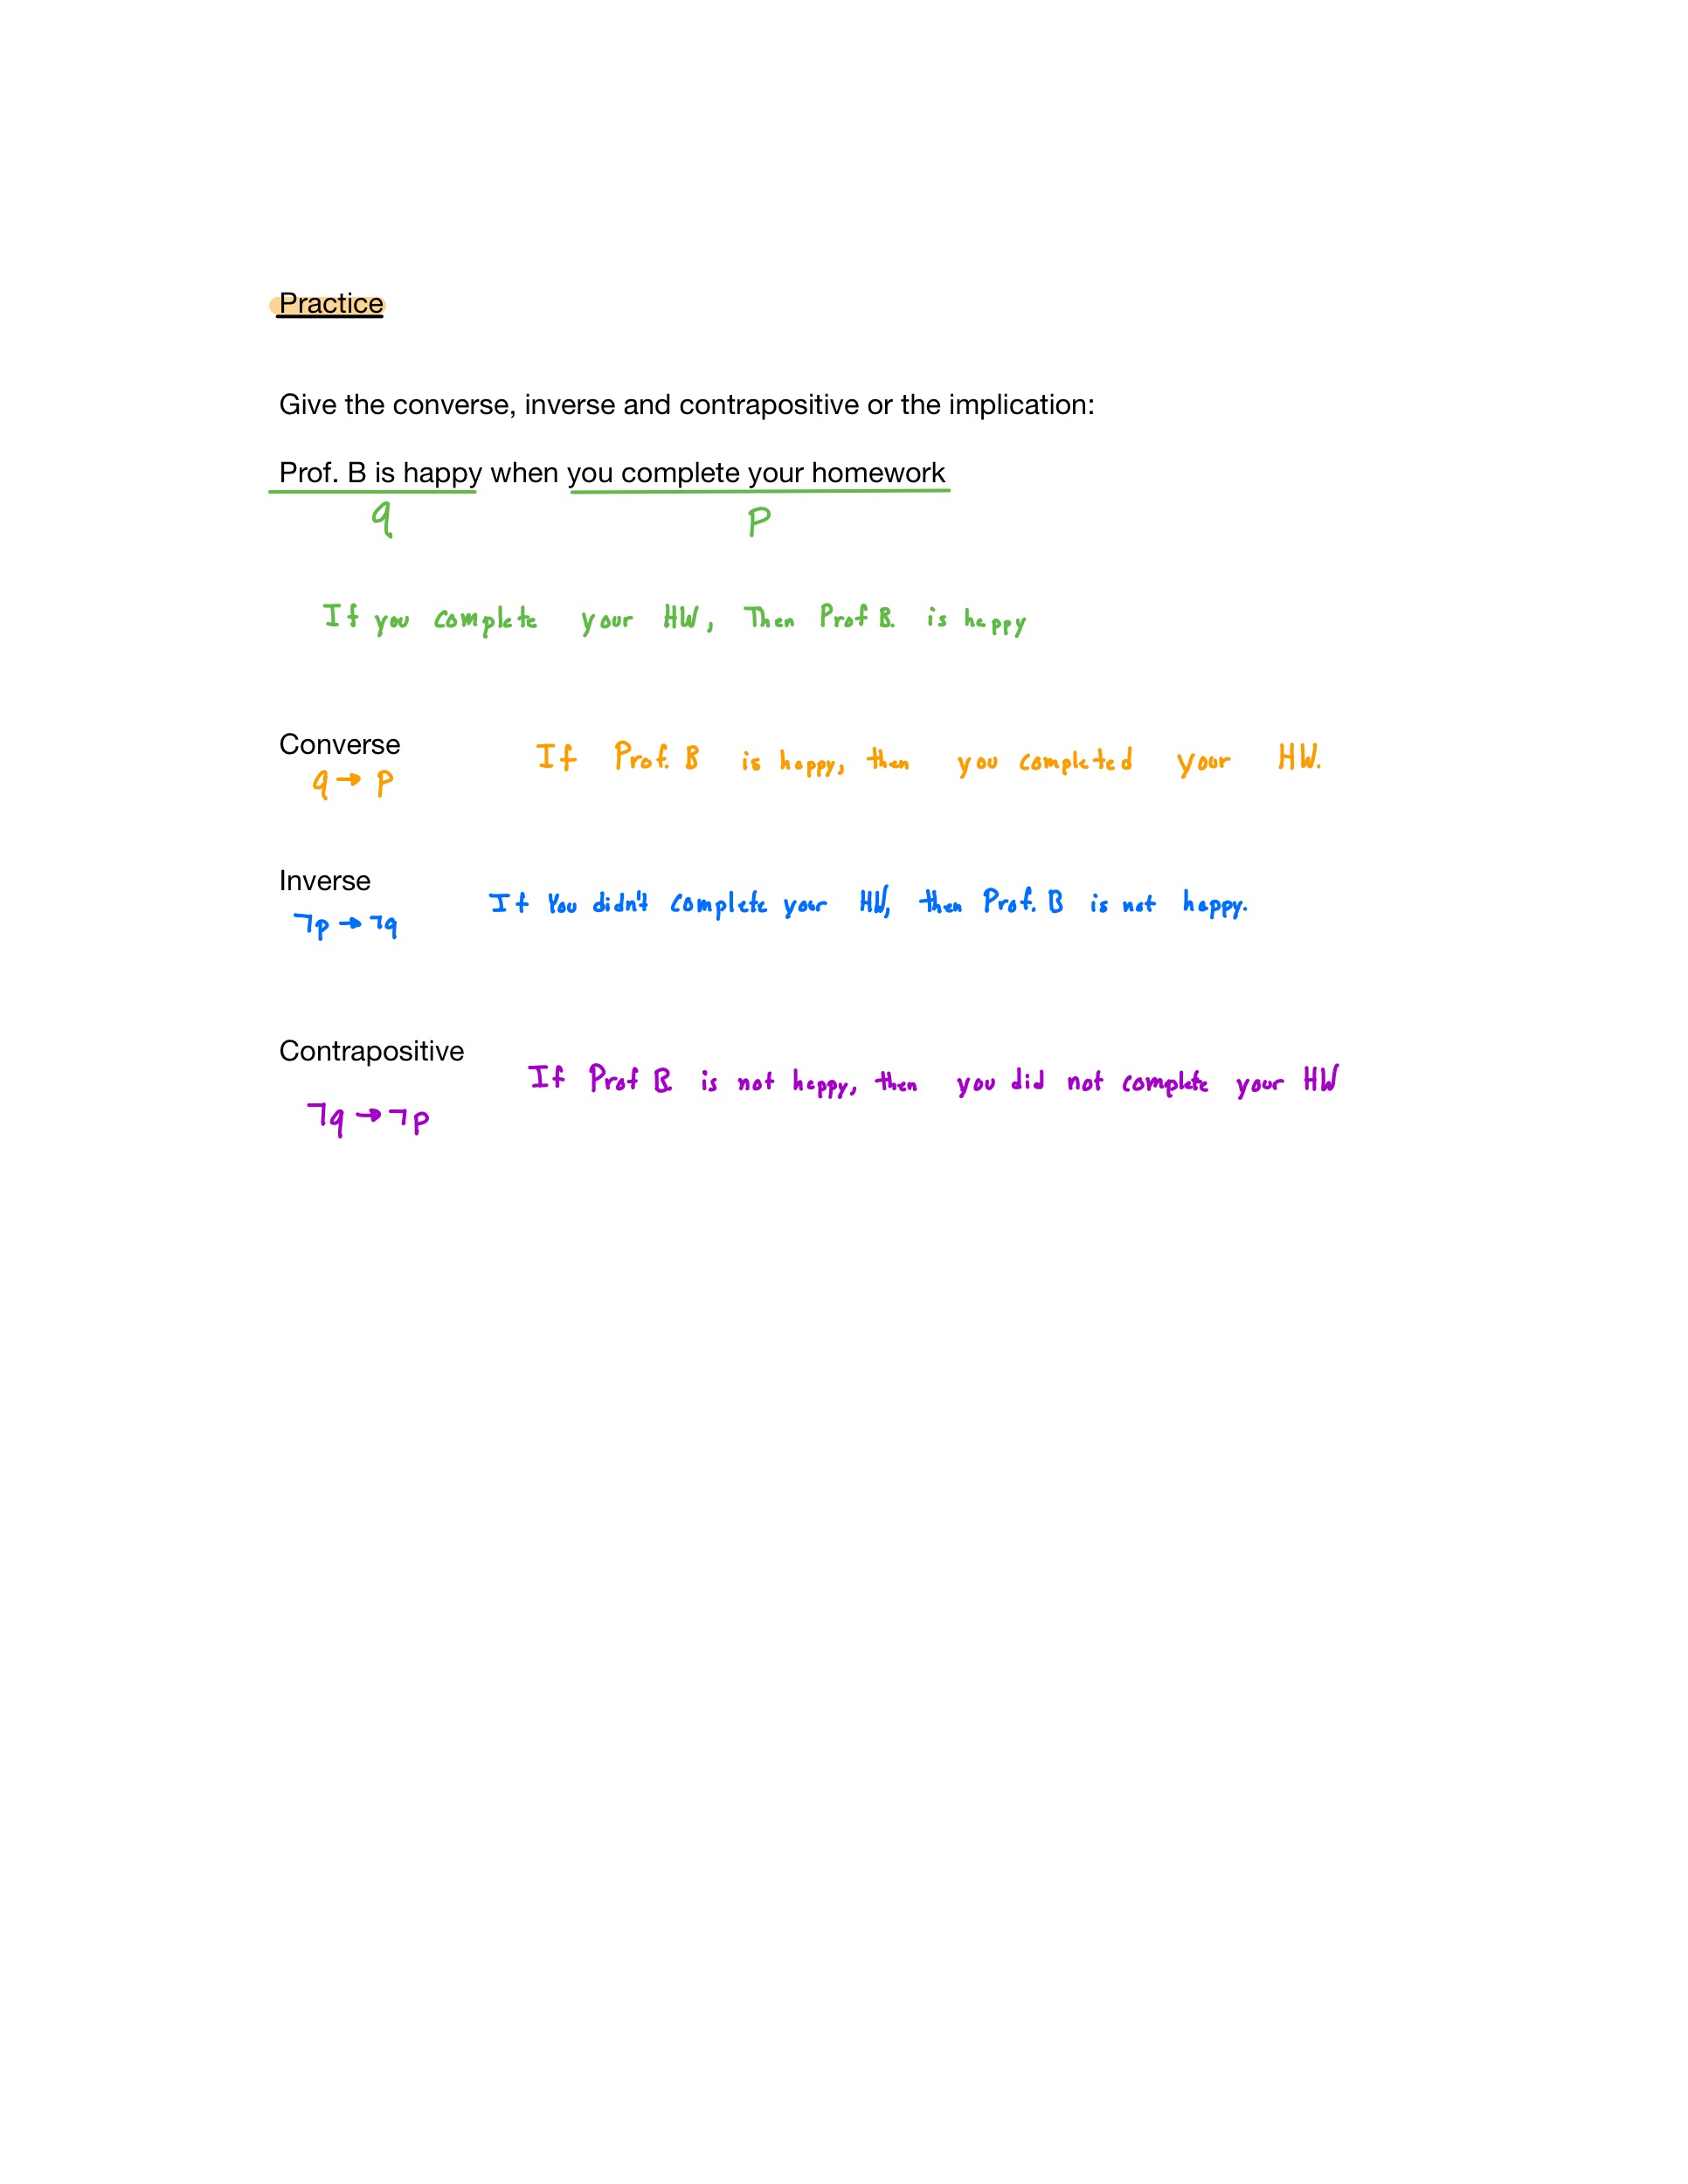 Practice
Give the converse, inverse and contrapositive or the implication:
Prof. B is happy when you complete your homework
q p
If you complete your HW, Then Prof B. is happy
Converse If Prof. B is happy, then you completed your HW.
q → p
Inverse If You didn't complete your HW, then Prof. B is not happy.
¬p → ¬q
Contrapositive
If Prof B. is not happy, then you did not complete your HW
¬q → ¬p